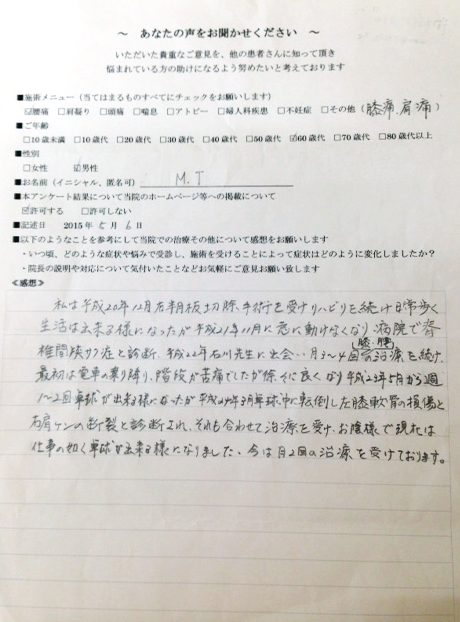 ～ あなたの声をお聞かせください ～
いただいた貴重なご意見を、他の患者さんに知って頂き
悩まれている方の助けになるよう努めたいと考えております
■施術メニュー（当てはまるものすべてにチェックをお願いします）
☑腰痛 □肩凝り □頭痛 □喘息 □アトピー □婦人科疾患 □不妊症 □その他（膝痛肩痛）
■ご年齢
□10歳未満 □10歳代 □20歳代 □30歳代 □40歳代 □50歳代 ☑60歳代 □70歳代 □80歳代以上
■性別
□女性 ☑男性
■お名前（イニシャル、匿名可） M.T
■本アンケート結果について当院のホームページ等への掲載について
☑許可する □許可しない
■記述日 2015年5月6日
■以下のようなことを参考にして当院での治療その他について感想をお願いします
・いつ頃、どのような症状や悩みで受診し、施術を受けることによって症状はどのように変化しましたか？
・院長の説明や対応について気付いたことなどお気軽にご意見お願い致します
≪感想≫
私は平成20年12月右半月板切除、手術を受けリハビリを続け日常歩く
生活は出来る様になったが平成21年11月に急に動けなくなり病院で脊
椎間狭サク症と診断、平成22年石川先生に出会 月3～4回 治療を続け、
膝・腰
最初は電車の乗り降り、階段が苦痛でしたが徐々に良くなり平成23年5月から週
1～2回卓球が出来る様になったが平成24年3月卓球中に転倒し左膝軟骨の損傷と
右肩ケンの断裂と診断され、それも合わせて治療を受け、お陰様で現在は
仕事の如く卓球が出来る様になりました、今は月2回の治療を受けております。